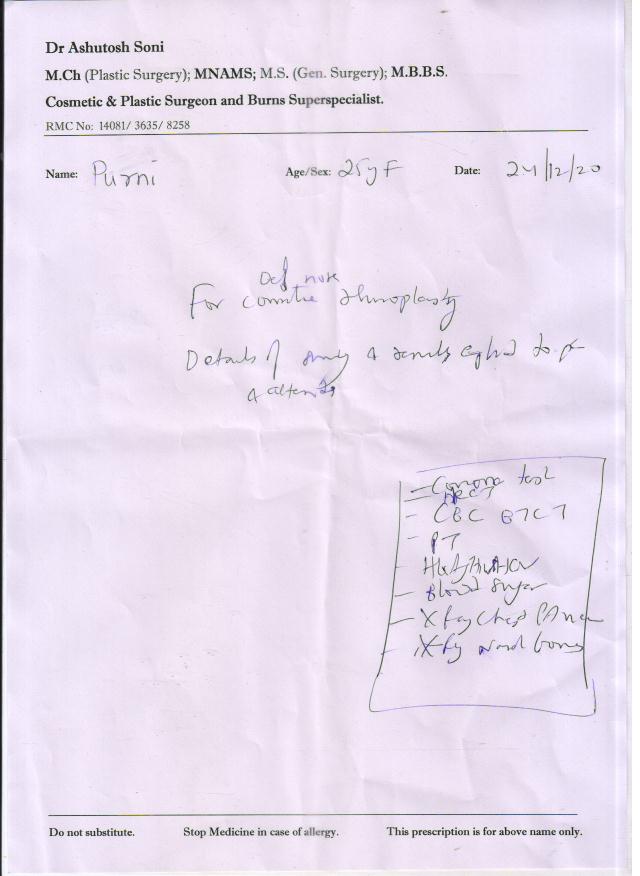 Dr Ashutosh Soni
M.Ch (Plastic Surgery); MNAMS; M.S. (Gen. Surgery); M.B.B.S.
Cosmetic & Plastic Surgeon and Burns Superspecialist.
RMC No: 14081/ 3635/ 8258
Name: Purni Age/Sex: 25y F Date: 24/12/20
Def nose
For
Details of to
Corona test
HRCT
CBC BTCT
PT
Blood Sugar
X Ray Chest PA view
X Ray Nasal bones
Do not substitute. Stop Medicine in case of allergy. This prescription is for above name only.